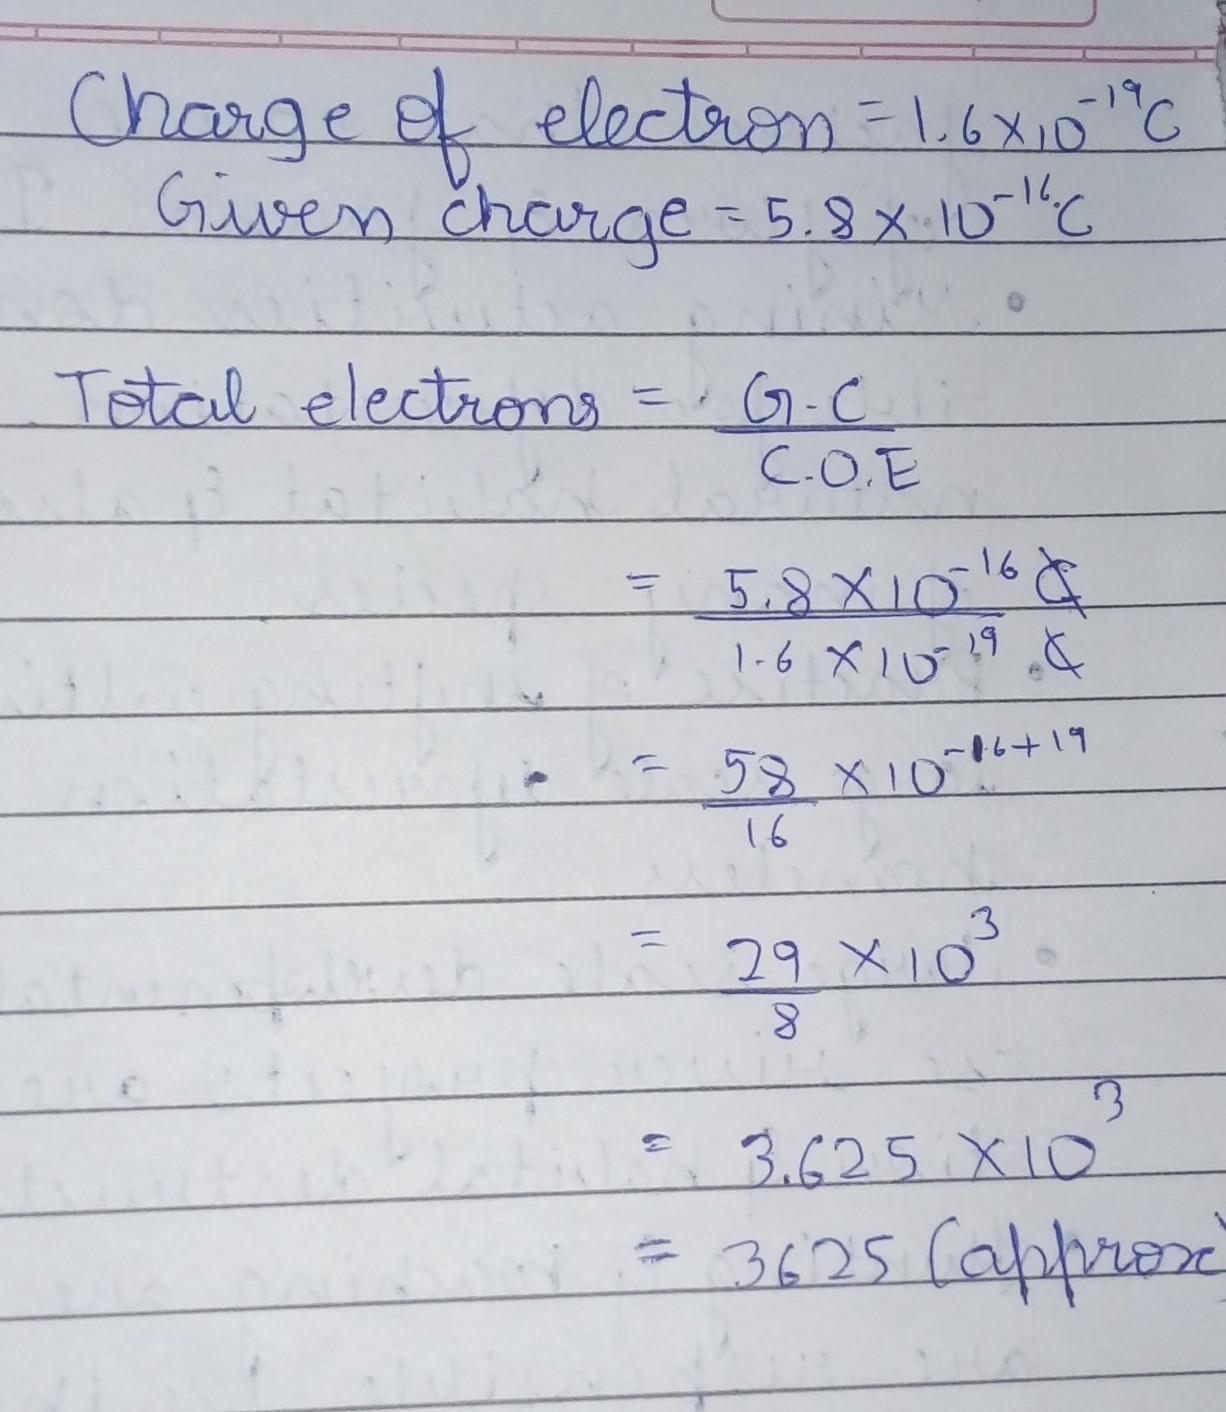 Charge of electron = 1.6 × 10⁻¹⁹ C
Given charge = 5.8 × 10⁻¹⁶ C
Total electrons = G.C
C.O.E
= 5.8 × 10⁻¹⁶ C
1.6 × 10⁻¹⁹ C
= 58 × 10⁻¹⁶⁺¹⁹
16
= 29 × 10³
8
= 3.625 × 10³
= 3625 (approx)